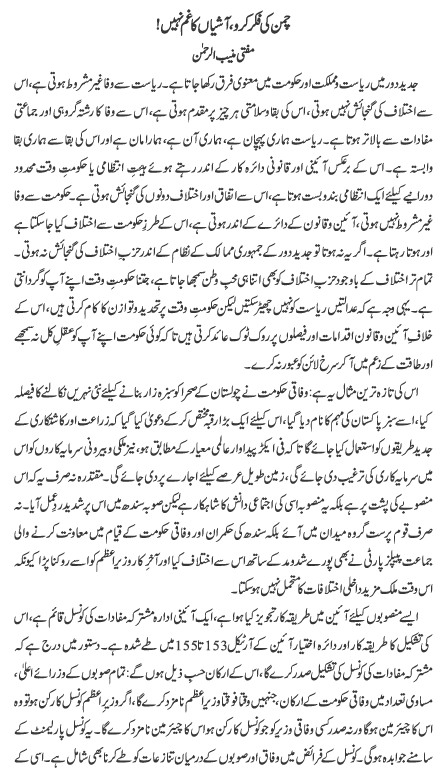 چمن کی فکر کرو، آشیاں کا غم نہیں!
مفتی منیب الرحمٰن
جدید دور میں ریاست و مملکت اور حکومت میں معنوی فرق رکھا جاتا ہے۔ ریاست سے وفا غیر مشروط ہوتی ہے، اس
سے اختلاف کی گنجائش نہیں ہوتی، اس کی بقا و سلامتی ہر چیز پر مقدم ہوتی ہے، اس سے وفا کا رشتہ گروہی اور جماعتی
مفادات سے بالاتر ہوتا ہے۔ ریاست ہماری پہچان ہے، ہماری آن ہے، ہمارا مان ہے اور اس کی بقا سے ہماری بقا
وابستہ ہے۔ اس کے برعکس آئینی اور قانونی دائرہ کار کے اندر رہتے ہوئے ہیئتِ انتظامی یا حکومتِ وقت محدود
دورانیے کیلئے ایک انتظامی بندوبست ہوتا ہے، اس سے اتفاق اور اختلاف دونوں کی گنجائش ہوتی ہے۔ حکومت سے وفا
غیر مشروط نہیں ہوتی، آئین و قانون کے دائرے کے اندر ہوتی ہے، اس کے طرزِ حکومت سے اختلاف کیا جا سکتا ہے
اور ہوتا رہتا ہے۔ اگر یہ نہ ہوتا تو جدید دور کے جمہوری ممالک کے نظام کے اندر حزبِ اختلاف کی گنجائش نہ ہوتی۔
تمام تر اختلاف کے باوجود حزبِ اختلاف کو بھی اتنا ہی محبِ وطن سمجھا جاتا ہے، جتنا حکومتِ وقت اپنے آپ کو گردانتی
ہے۔ یہی وجہ ہے کہ عدالتیں ریاست کو نہیں چھیڑ سکتیں لیکن حکومتِ وقت پر تحدید و توازن کا کام کرتی ہیں، اس کے
خلافِ آئین و قانون اقدامات اور فیصلوں پر روک ٹوک عائد کرتی ہیں تاکہ کوئی حکومت اپنے آپ کو عقلِ کل نہ سمجھے
اور طاقت کے زعم میں آ کر سرخ لائن کو عبور نہ کرے۔
اس کی تازہ ترین مثال یہ ہے: وفاقی حکومت نے چولستان کے صحرا کو سبزہ زار بنانے کیلئے نئی نہریں نکالنے کا فیصلہ
کیا، اسے سبز پاکستان کی مہم کا نام دیا گیا، اس کیلئے ایک بڑا رقبہ مختص کر کے دعویٰ کیا گیا کہ زراعت اور کاشتکاری کے
جدید طریقوں کو استعمال کیا جائے گا تاکہ فی ایکڑ پیداوار عالمی معیار کے مطابق ہو، نیز ملکی و بیرونی سرمایہ کاروں کو اس
میں سرمایہ کاری کی ترغیب دی جائے گی، زمین طویل عرصے کیلئے اجارے پر دی جائے گی۔ مقتدرہ نہ صرف یہ کہ اس
منصوبے کی پشت پر ہے بلکہ یہ منصوبہ اسی کی اجتماعی دانش کا شاہکار ہے لیکن صوبہ سندھ میں اس پر شدید ردِعمل آیا۔ نہ
صرف قوم پرست گروہ میدان میں آئے بلکہ سندھ کی حکمران اور وفاقی حکومت کے قیام میں معاونت کرنے والی
جماعت پیپلز پارٹی نے بھی پورے شدومد کے ساتھ اس سے اختلاف کیا اور آخر کار وزیراعظم کو اسے روکنا پڑا کیونکہ
اس وقت ملک مزید داخلی اختلافات کا متحمل نہیں ہو سکتا۔
ایسے منصوبوں کیلئے آئین میں طریقۂ کار تجویز کیا ہوا ہے، ایک آئینی ادارہ مشترکہ مفادات کی کونسل قائم ہے، اس
کی تشکیل کا طریقۂ کار اور دائرہ اختیار آئین کے آرٹیکل 153 تا 155 میں طے شدہ ہے۔ دستور میں درج ہے کہ
مشترکہ مفادات کی کونسل کی تشکیل صدر کرے گا، اس کے ارکان حسبِ ذیل ہوں گے: تمام صوبوں کے وزرائے اعلیٰ،
مساوی تعداد میں وفاقی حکومت کے ارکان، جنہیں وقتاً فوقتاً وزیراعظم نامزد کرے گا، اگر وزیراعظم کونسل کا رکن ہو تو وہ
اس کا چیئرمین ہو گا ورنہ صدر کسی وفاقی وزیر کو جو کونسل کا رکن ہو اس کا چیئرمین نامزد کرے گا۔ یہ کونسل پارلیمنٹ کے
سامنے جوابدہ ہو گی۔ کونسل کے فرائض میں وفاق اور صوبوں کے درمیان تنازعات کو طے کرنا بھی شامل ہے۔ اسی کے